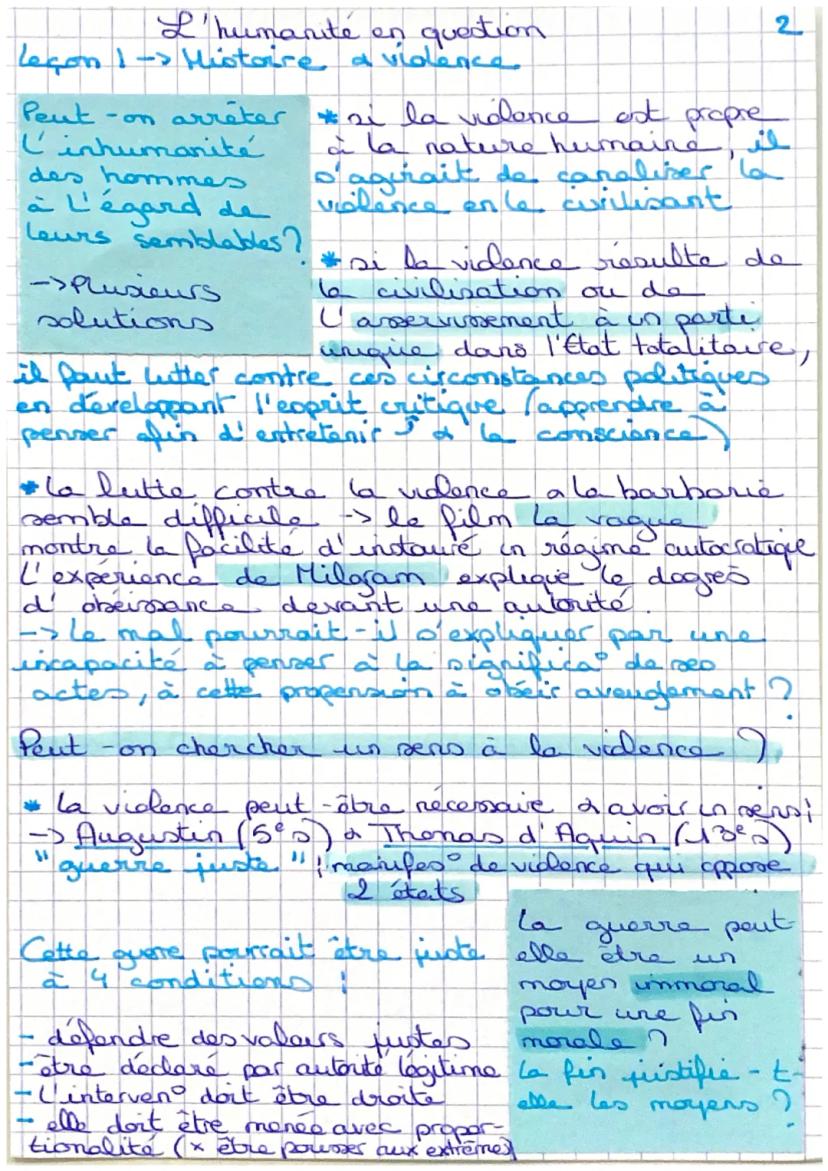 L'humanité en question
2
Leçon 1 -> Histoire & violence
Peut-on arrêter
l'inhumanité
des hommes
à l'égard de
leurs semblables ?
-> Plusieurs
solutions
* si la violence est propre
à la nature humaine, il
s'agirait de canaliser la
violence en le civilisant
* si la violence résulte de
la civilisation ou de
l'asservissement à un parti
unique dans l'Etat totalitaire,
il faut lutter contre ces circonstances politiques
en développant l'esprit critique (apprendre à
penser afin d'entretenir & la conscience)
* La lutte contre la violence a la barbarie
semble difficile -> le film La vague
montre la facilité d'instauré un régime autocratique
L'expérience de Milgram explique le degrés
d'obéissance devant une autorité.
-> Le mal pourrait-il s'expliquer par une
incapacité à penser à la significa° de ses
actes, à cette propension à obéir aveuglement ?
Peut-on chercher un sens à la violence ?
* La violence peut-être nécessaire & avoir un sens :
-> Augustin (5e s) & Thomas d'Aquin (13e s)
"guerre juste" : manifes° de violence qui oppose
2 états
Cette guerre pourrait être juste
à 4 conditions :
- défendre des valeurs justes
- être déclaré par autorité légitime
- L'interven° doit être droite
- elle doit être menée avec propor-
tionalité (x être pousser aux extrêmes)
La guerre peut-
elle être un
moyen immoral
pour une fin
morale ?
La fin justifie-t-
elle les moyens ?